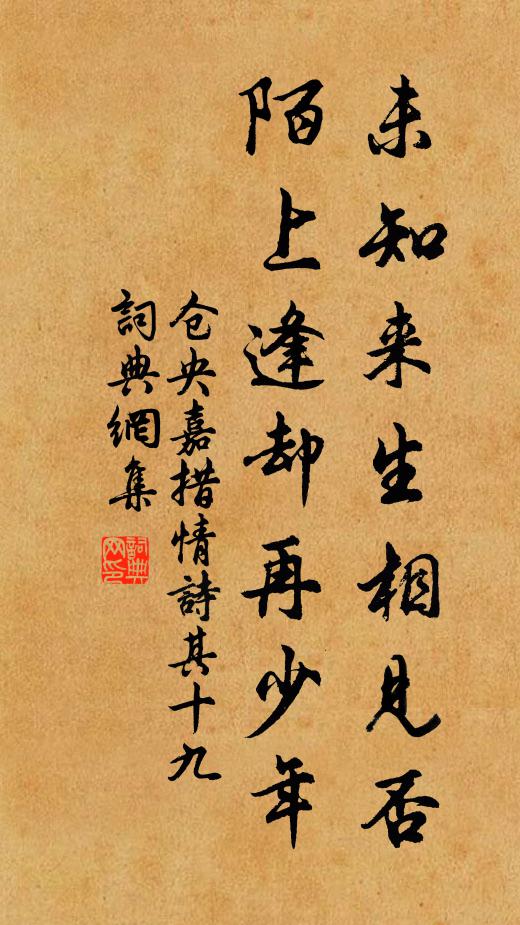 未知来生相見否
陌上逢却再少年
仓央嘉措情詩其十九
詞典網集
詞典网印